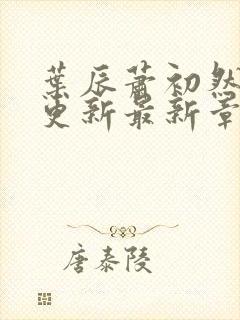 葉辰蕭初然
更新最新章
唐泰陵